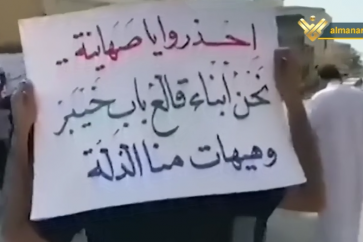 almanar
احذروا يا صهاينة ..
نحن أبناء قالع باب خيبر
وهيهات منا الذلة